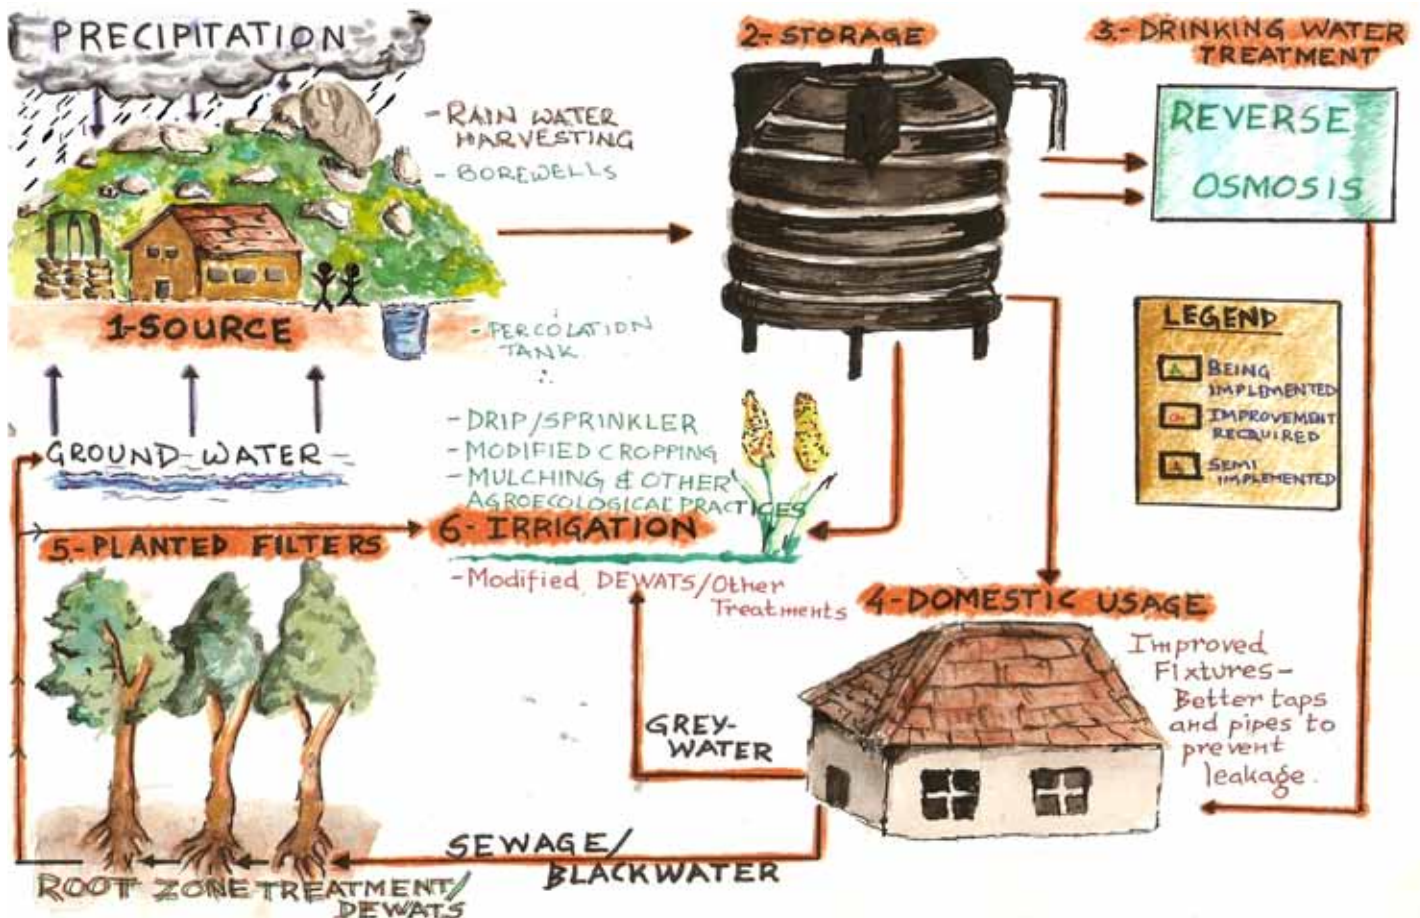 PRECIPITATION
- RAIN WATER
HARVESTING
- BOREWELLS
1-SOURCE
- PERCOLATION
TANK
GROUND-WATER
2-STORAGE
3-DRINKING WATER
TREATMENT
REVERSE
OSMOSIS
LEGEND
BEING
IMPLEMENTED
IMPROVEMENT
RECQUIRED
SEMI
IMPLEMENTED
- DRIP/SPRINKLER
- MODIFIED CROPPING
- MULCHING & OTHER
AGROECOLOGICAL PRACTICES
6-IRRIGATION
- Modified DEWATS/Other
Treatments
5-PLANTED FILTERS
4-DOMESTIC USAGE
Improved
Fixtures-
Better taps
and pipes to
prevent
leakage.
GREY-
WATER
SEWAGE/
BLACKWATER
ROOT ZONE TREATMENT/
DEWATS